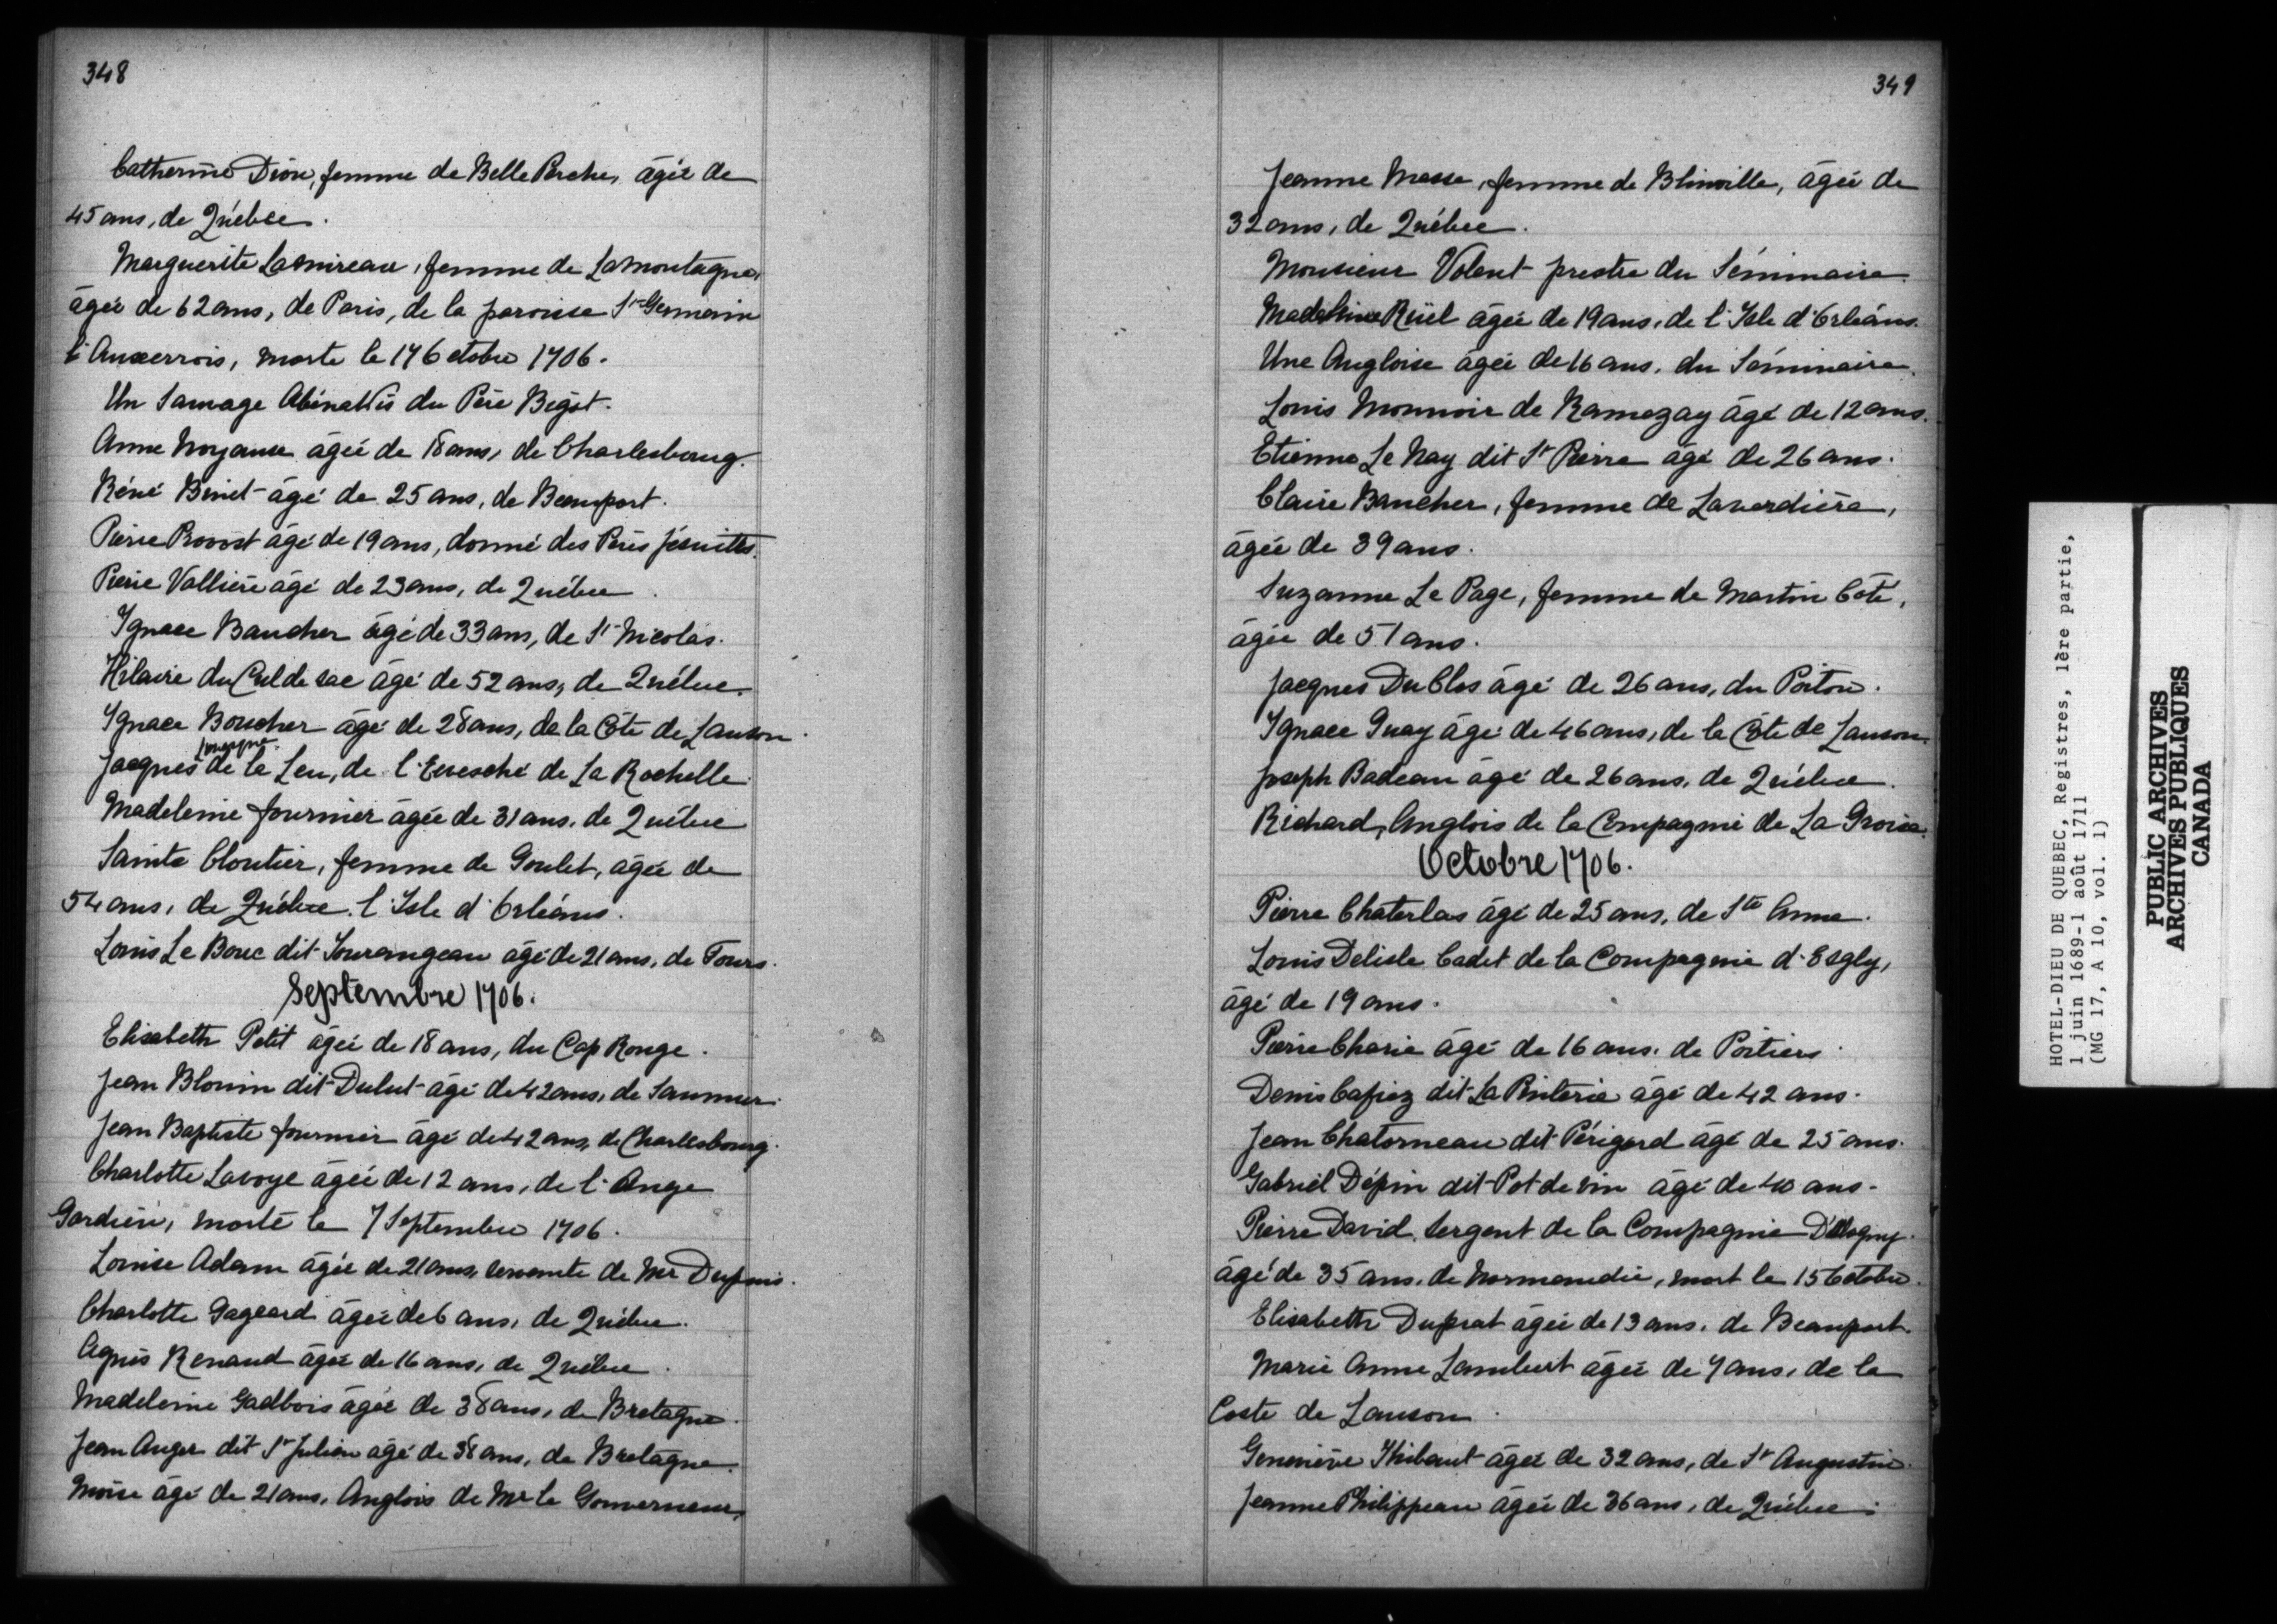 348
Catherine Dion, femme de Belle Perche, âgée de
45 ans, de Québec.
Marguerite Lamireau, femme de Lamontagne,
âgée de 62 ans, de Paris, de la paroisse St Germain
l'Auxerrois, morte le 17 8ctobre 1706.
Un Sauvage Abénakis du Père Bigot.
Anne Noyaux âgée de 18 ans, de Charlesbourg.
Réné Binet âgé de 25 ans, de Beauport.
Pierre Provost âgé de 19 ans, donné des Pères Jésuites.
Pierre Vallière âgé de 23 ans, de Québec.
Ignace Baucher âgé de 33 ans, de St Nicolas.
Hilaire du Cul de sac âgé de 52 ans, de Québec.
Ignace Boucher âgé de 28 ans, de la Côte de Lauson.
Jacques de la Leu, de l'Evesché de La Rochelle.
Madeleine fournier âgée de 31 ans, de Québec
Sainte Cloutier, femme de Goulet, âgée de
54 ans, de Québec. l'Isle d'Orléans.
Louis Le Bouc dit Tourangeau âgé de 21 ans, de Tours.
Septembre 1706.
Elisabeth Petit âgée de 18 ans, du Cap Rouge.
Jean Blouin dit Dulut âgé de 42 ans, de Saumur.
Jean Baptiste fournier âgé de 42 ans, de Charlesbourg.
Charlotte Lavoye âgée de 12 ans, de l'Ange
Gardien, morte le 7 Septembre 1706.
Louise Adam âgée de 21 ans, servante de Mr Dupuis.
Charlotte Gageard âgée de 6 ans, de Québec.
Agnès Renaud âgée de 16 ans, de Québec.
Madeleine Gadbois âgée de 38 ans, de Bretagne.
Jean Auger dit St Julien âgé de 38 ans, de Bretagne.
Moïse âgé de 21 ans, Anglois de Mr le Gouverneur,
349
Jeanne Masse, femme de Blinville, âgée de
32 ans, de Québec.
Monsieur Volant prestre du Séminaire.
Madeleine Rüel âgée de 19 ans, de l'Isle d'Orléans.
Une Angloise âgée de 16 ans, du Séminaire.
Louis Monnoir de Ramezay âgé de 12 ans.
Etienne Le Nay dit St Pierre âgé de 26 ans.
Claire Baucher, femme de Laverdière,
âgée de 39 ans.
Suzanne Le Page, femme de Martin Côté,
âgée de 51 ans.
Jacques DuClos âgé de 26 ans, du Poitou.
Ignace Guay âgé de 46 ans, de la Côte de Lauson.
Joseph Badeau âgé de 26 ans, de Québec.
Richard, Anglois de la Compagnie de La Groise.
Octobre 1706.
Pierre Chaterlas âgé de 25 ans, de Ste Anne.
Louis Delisle Cadet de la Compagnie d'Esgly,
âgé de 19 ans.
Pierre Charie âgé de 16 ans, de Poitiers.
Denis Cafiez dit La Pinterie âgé de 42 ans.
Jean Chatorneau dit Périgord âgé de 25 ans.
Gabriel Dépin dit Pot de vin âgé de 40 ans.
Pierre David, sergent de la Compagnie
âgé de 35 ans, de Normandie, mort le 15 8ctobre.
Elisabeth Duprat âgée de 13 ans, de Beauport.
Marie Anne Lambert âgée de 7 ans, de la
Coste de Lauson.
Geneviève Thibaut âgée de 32 ans, de St Augustin.
Jeanne Philippeau âgée de 36 ans, de Québec.
HOTEL-DIEU DE QUEBEC, Registres, 1ère partie,
1 juin 1689-1 août 1711
(MG 17, A 10, vol. 1)
PUBLIC ARCHIVES
ARCHIVES PUBLIQUES
CANADA